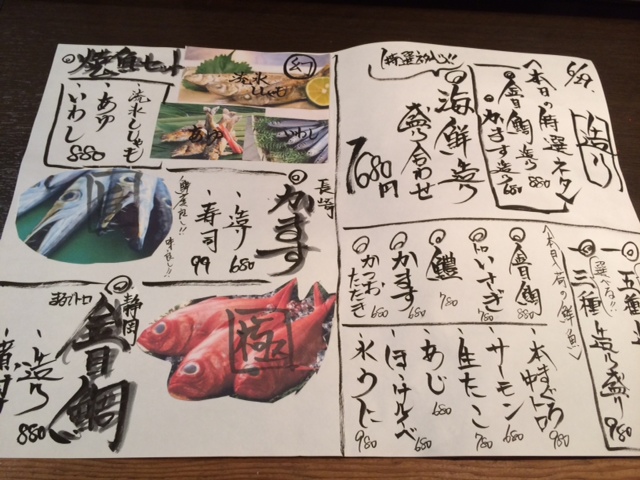 5/29.
造り
〈本日の特選ネタ〉
金目鯛造り 880
かます造り 680
特選ネタ!!
海鮮造り
盛り合わせ
1680円
一、五種
一、三種造り盛り 980
選べる!!
〈本日入荷の鮮魚〉
金目鯛 880
いさき 780
鱧 780
かます 680
かつおたたき 680
本まぐろ中トロ 980
サーモン 680
生たこ 780
あじ 680
ほっけルイベ 680
氷うに 980
焼魚セット
流氷ししゃも
あゆ
いわし
880
幻
流氷ししゃも
あゆ
いわし
長崎
かます
造り 680
寿司 99
鮮度良し!! 味良し!!
静岡
金目鯛
まるでトロ
造り 880
極